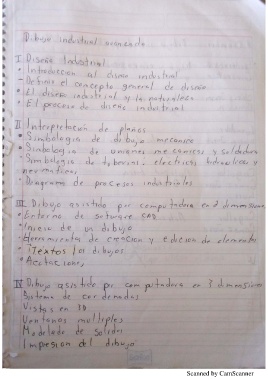 Dibujo industrial avanzado
I Diseño Industrial
• Introduccion al diseño industrial
- Definir el concepto general de diseño
• El diseño industrial y la naturaleza
• El proceso de diseño industrial
II Interpretación de planos
• Simbologia de dibujo mecanico
• Simbologia de uniones mecanicas y soldadura
• Simbologia de tuberias, electricas, hidraulicas y neumaticas
• Diagrama de procesos industriales
III Dibujo asistido por computadora en 2 dimensiones
• Entorno de software CAD
• Inicio de un dibujo
• Herramientas de creacion y edicion de elementos
• Textos dibujos
• Acotaciones
IV Dibujo asistido por computadora en 3 dimensiones
Sistema de cordenadas
Vistas en 3D
Ventanas multiples
Modelado de solidos
Impresion del dibujo
Scanned by CamScanner